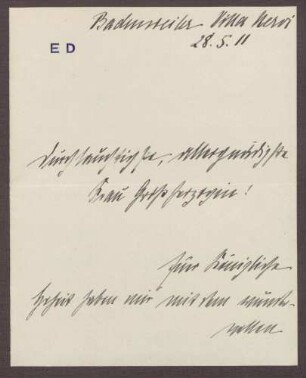 Badenweiler Villa Meroi
28. 5. 11
E D
Durchlauchtigste, allergnädigste
Frau Großherzogin!
Eure Königliche
Hoheit haben mir mit dem wunder-
vollen